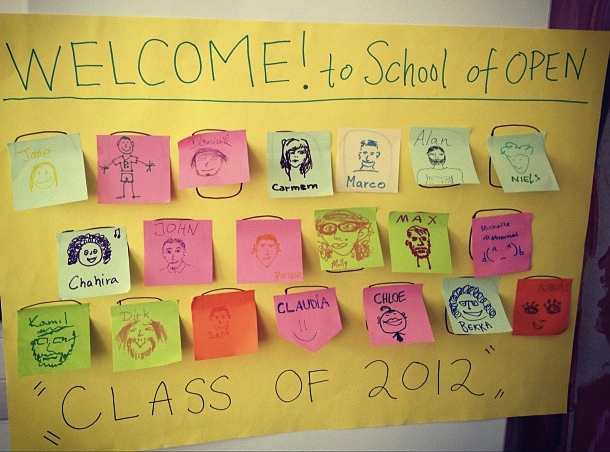 WELCOME! to School of OPEN
Jane
Carmem
Marco
Alan
NIELS
Chahira
JOHN
Molly
MAX
Michelle
Kamil
Dirk
CLAUDIA
CHLOE
BEKKA
"CLASS OF 2012"